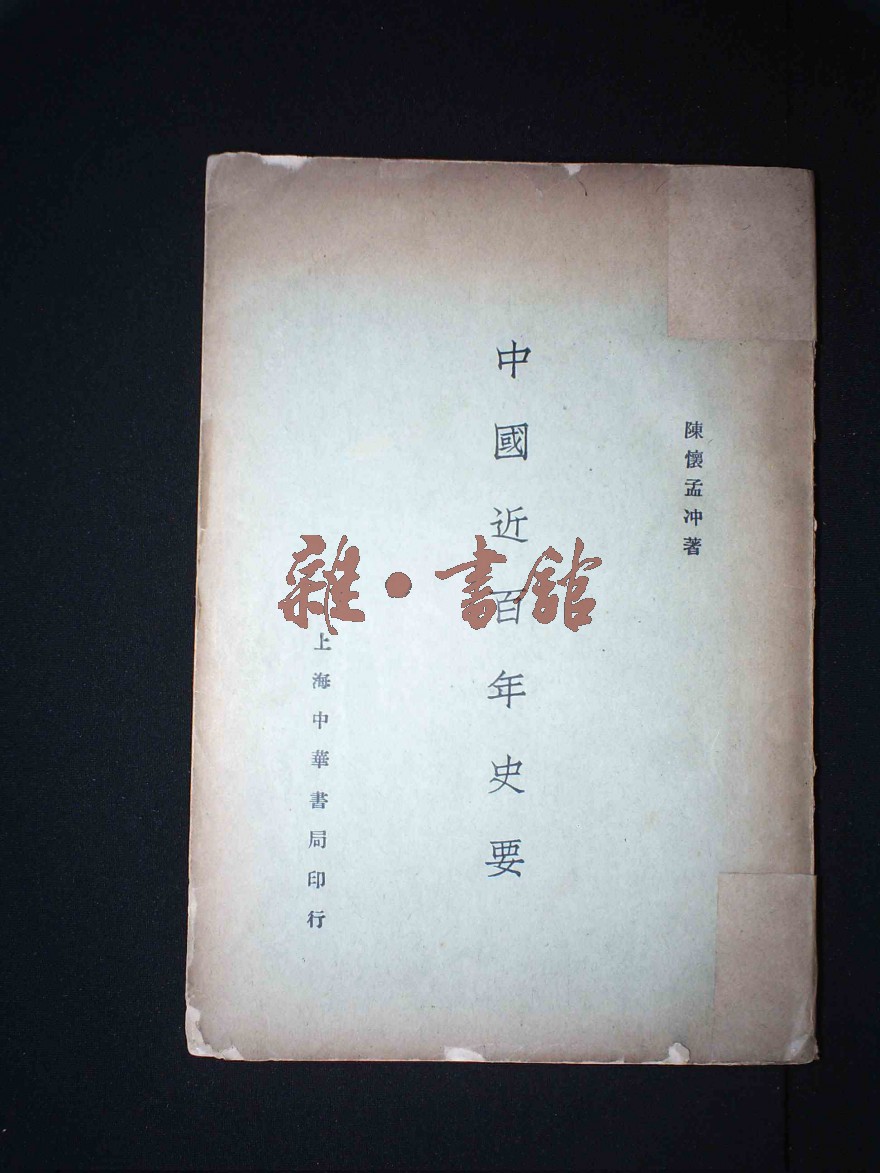 陳懷孟冲著
中國近百年史要
上海中華書局印行
雜·書館